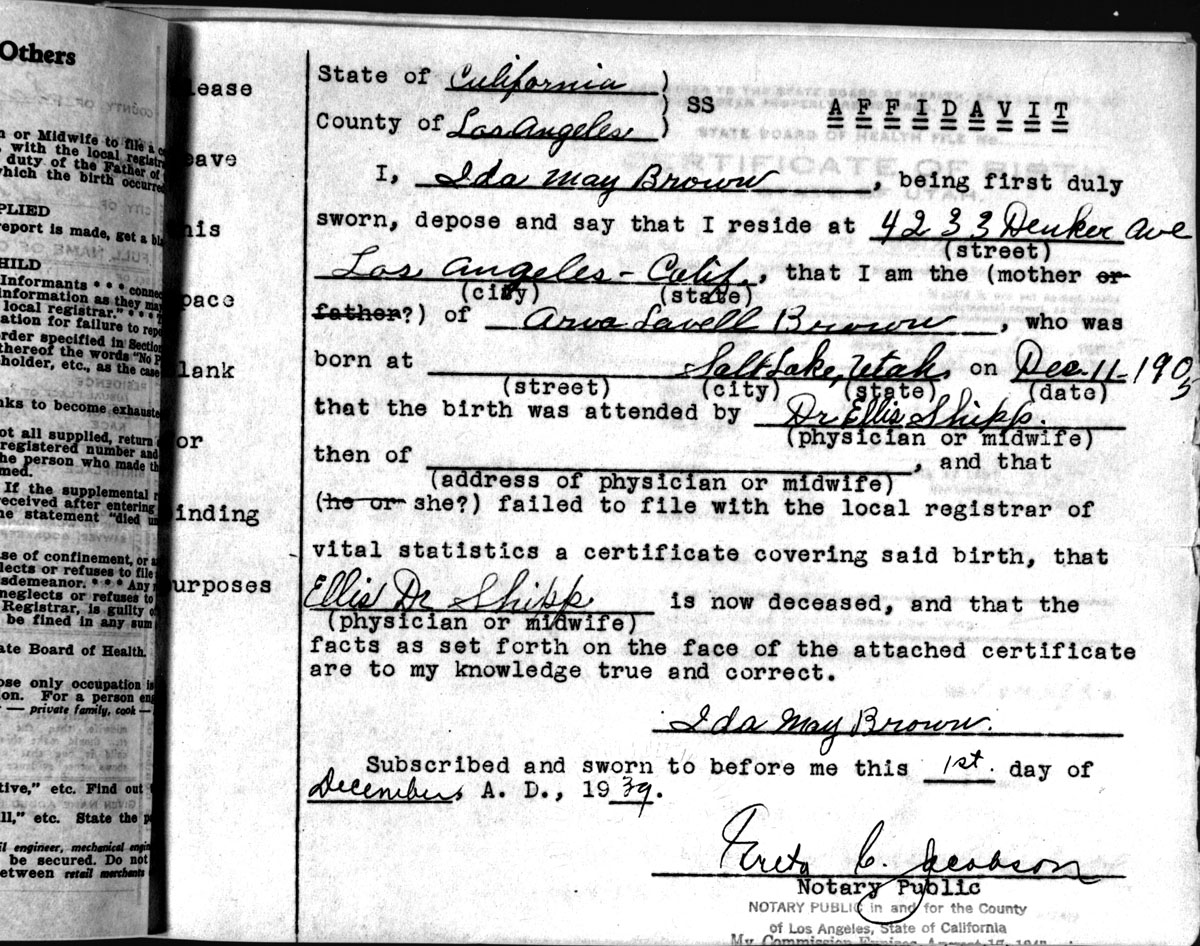 Others
n or Midwife to file a
with the local
duty of the Father of
which the birth occurred
PLIED
report is made, get a
HILD
Informants * * *
information as they may
local registrar." * * *
ation for failure to
order specified in
thereof the words "No
holder, etc., as the case
nks to become
ot all supplied, return
registered number and
he person who made
med.
If the supplemental
received after entering
he statement "died
se of confinement, or
lects or refuses to file
sdemeanor. * * * Any
neglects or refuses to
Registrar, is guilty
be fined in any sum
ate Board of Health.
ose only occupation
ion. For a person
— private family, cook —
tive," etc. Find out
ll," etc. State the
il engineer, mechanical
be secured. Do not
etween retail merchants
lease
eave
his
pace
lank
or
inding
urposes
State of California )
) SS AFFIDAVIT
County of Los Angeles )
I, Ida May Brown, being first duly
sworn, depose and say that I reside at 4233 Denker Ave
(street)
Los Angeles - Calif., that I am the (mother or
(city) (state)
father?) of Arva Lavell Brown, who was
born at Salt Lake, Utah, on Dec. 11-1903
(street) (city) (state) (date)
that the birth was attended by Dr Ellis Shipp.
(physician or midwife)
then of , and that
(address of physician or midwife)
(he or she?) failed to file with the local registrar of
vital statistics a certificate covering said birth, that
Ellis Dr Shipp is now deceased, and that the
(physician or midwife)
facts as set forth on the face of the attached certificate
are to my knowledge true and correct.
Ida May Brown.
Subscribed and sworn to before me this 1st. day of
December, A. D., 1939.
Greta C. Jacobson
Notary Public
NOTARY PUBLIC in and for the County
of Los Angeles, State of California
My Commission Expires August